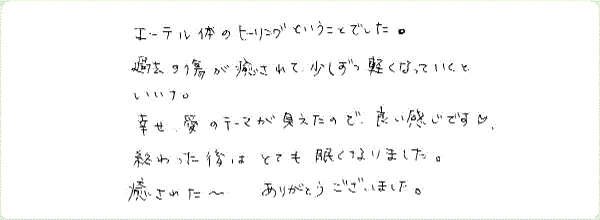 エーテル体のヒーリングということでした。
過去の傷が癒されて、少しずつ軽くなっていくと
いいナ。
幸せ、愛のテーマが見えたので、良い感じです♡、
終わった後は とても 眠くなりました。
癒された〜 ありがとうございました。